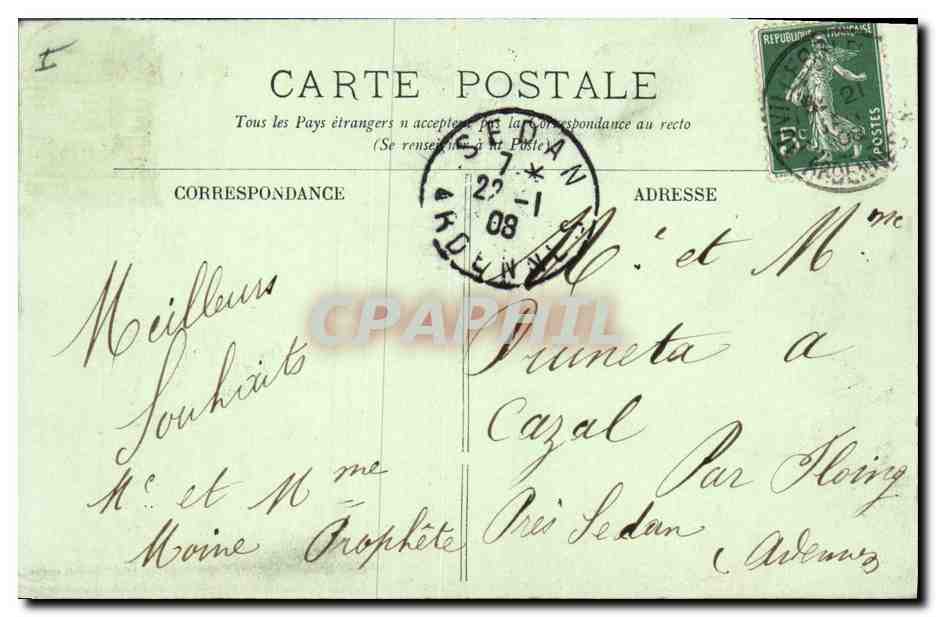 I
CARTE POSTALE
Tous les Pays étrangers n acceptent pas la Correspondance au recto
(Se renseigner à la Poste)
CORRESPONDANCE
ADRESSE
REPUBLIQUE FRANÇAISE
POSTES
21
SEDAN
7 *
22 -1
08
ARDENNES
Meilleurs
Souhaits
Mr. et Mme
Moine Prophête
Mr. et Mme
Pruneta a
Cazal
Par Floing
Près Sedan
(Ardennes
CPAPHIL